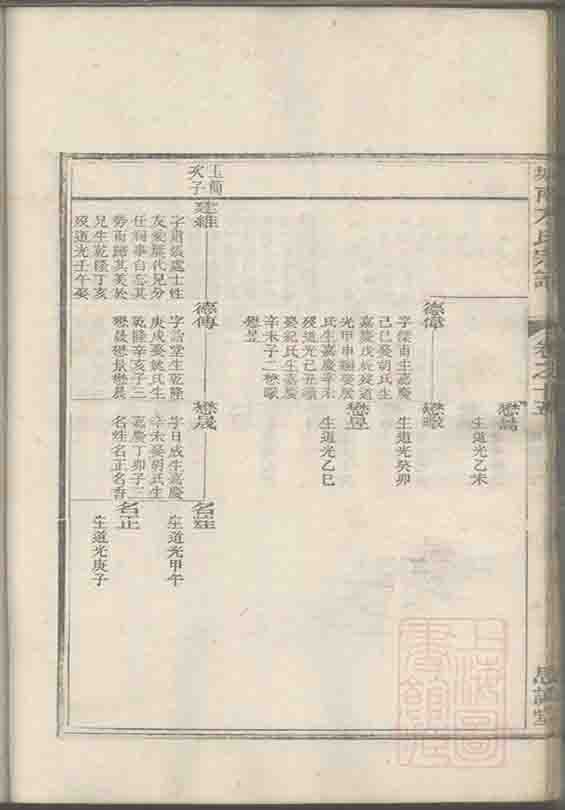 卷之十五
生道光乙未
德偉
字傑甫生嘉慶
己巳娶胡氏生
嘉慶戊辰歿道
光甲申繼娶
氏生嘉慶辛未
歿道光己丑續
娶紀氏生嘉慶
辛未子二懋暾
懋昱
懋暾
生道光癸卯
懋昱
生道光乙巳
次子
建維
處士性
友愛歷代兄分
任祠事自忘其
勞而歸其美於
兄生乾隆丁亥
歿道光壬午娶
德傅
字詒堂生乾隆
庚戌娶姚氏生
乾隆辛亥子三
懋晟懋景懋晨
懋晟
字日成生嘉慶
辛未娶胡氏生
嘉慶丁卯子二
名甡名正名香
名甡
生道光甲午
名正
生道光庚子
上海圖
書館藏